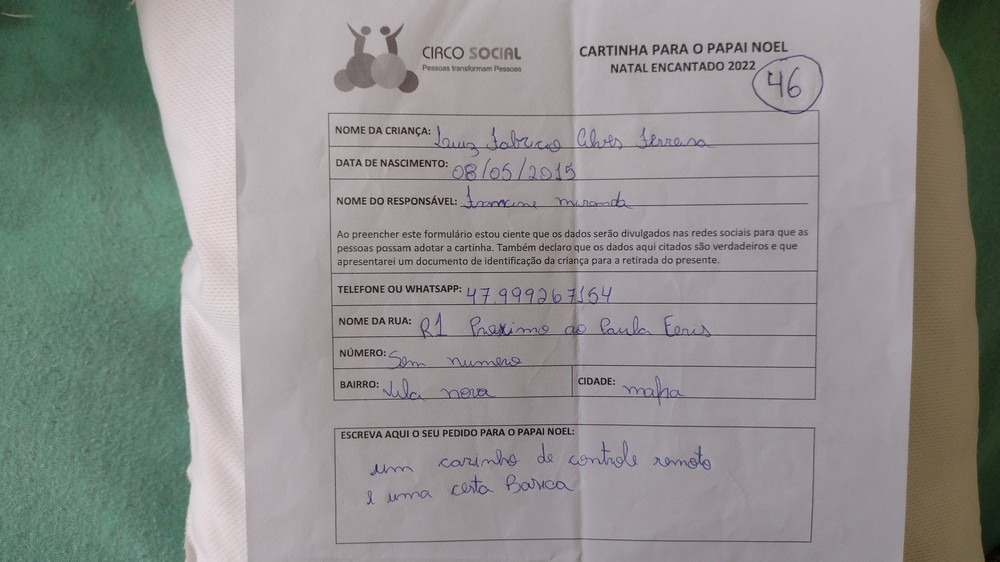 CIRCO SOCIAL
Pessoas transformam Pessoas
CARTINHA PARA O PAPAI NOEL
NATAL ENCANTADO 2022
46
NOME DA CRIANÇA: Luiz Fabricio Alves Ferreira
DATA DE NASCIMENTO: 08/05/2015
NOME DO RESPONSÁVEL: Miranda
Ao preencher este formulário estou ciente que os dados serão divulgados nas redes sociais para que as
pessoas possam adotar a cartinha. Também declaro que os dados aqui citados são verdadeiros e que
apresentarei um documento de identificação da criança para a retirada do presente.
TELEFONE OU WHATSAPP: 47.999267154
NOME DA RUA: R1 Proximo ao Paula
NÚMERO: Sem numero
BAIRRO: Vila nova CIDADE: mafra
ESCREVA AQUI O SEU PEDIDO PARA O PAPAI NOEL:
um carinho de controle remoto
e uma cesta Basica